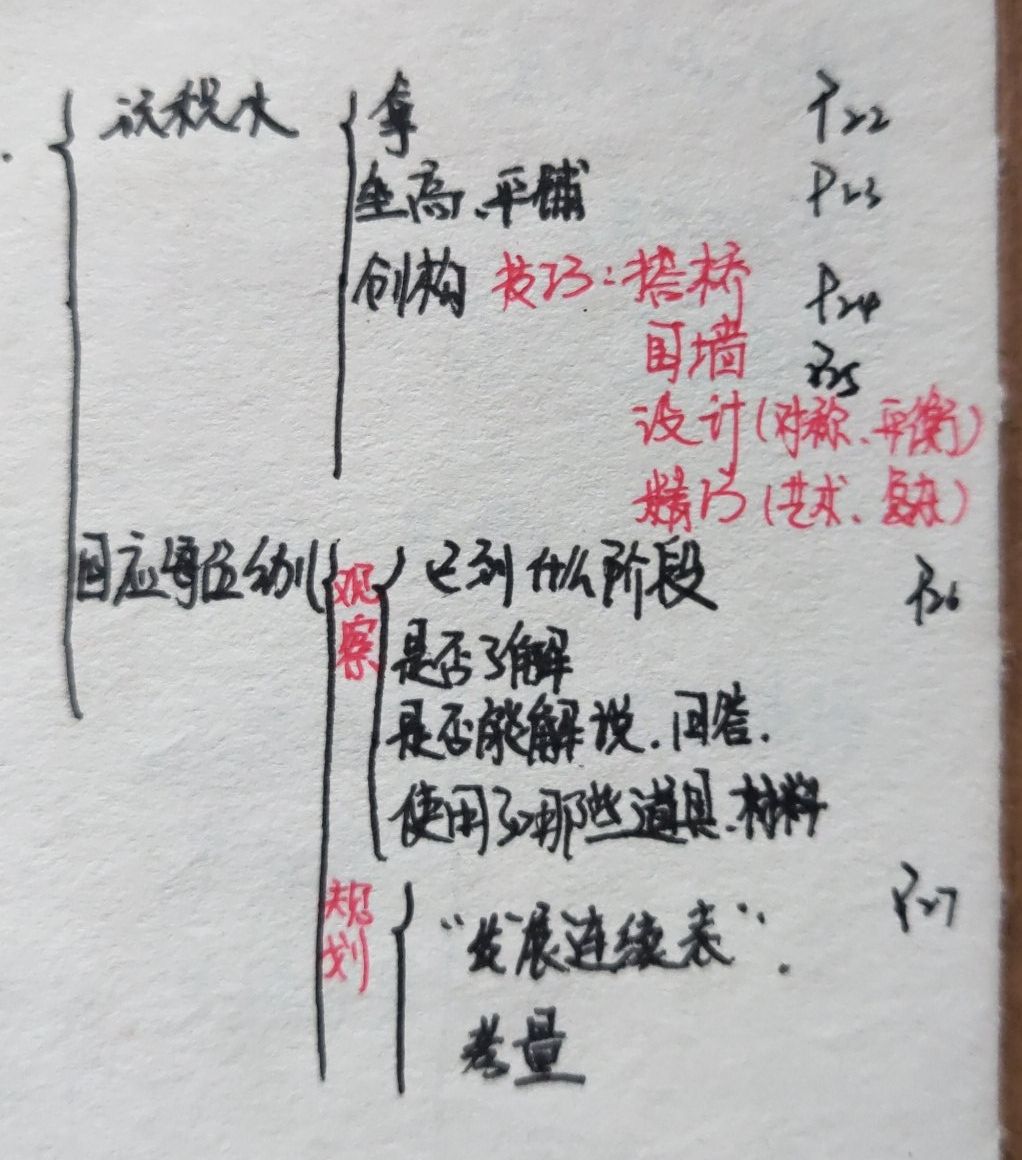 玩积木 拿 P22
垒高、平铺 P23
创构 技巧：搭桥 P24
围墙 P25
设计(对称、平衡)
精巧(艺术、复杂)
回应每位幼儿 观察 已到什么阶段 P26
是否了解
是否能解说、回答.
使用了哪些道具、材料
规划 P27
“发展连续表”.
考量